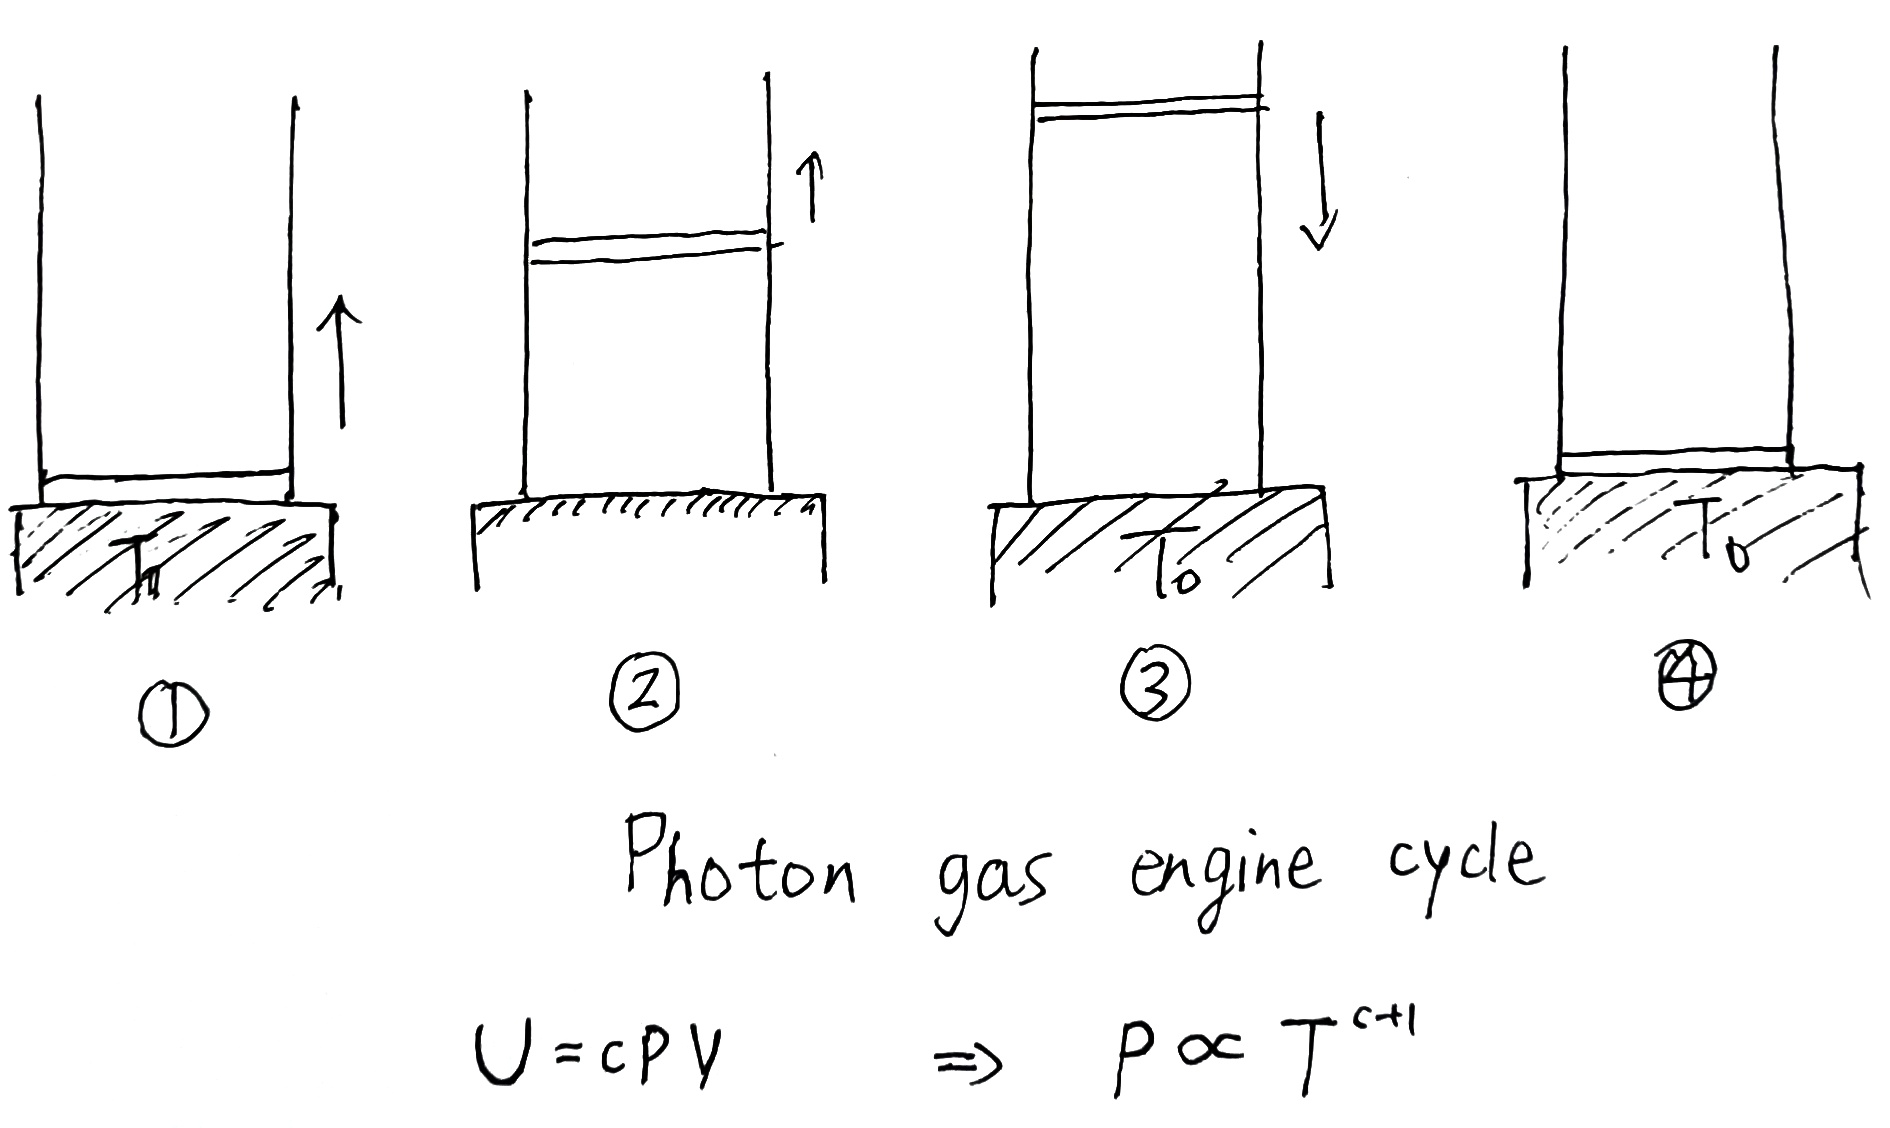 T₁ T₀ T₀
① ② ③ ④
Photon gas engine cycle
U = cPV ⇒ P ∝ T^{c+1}